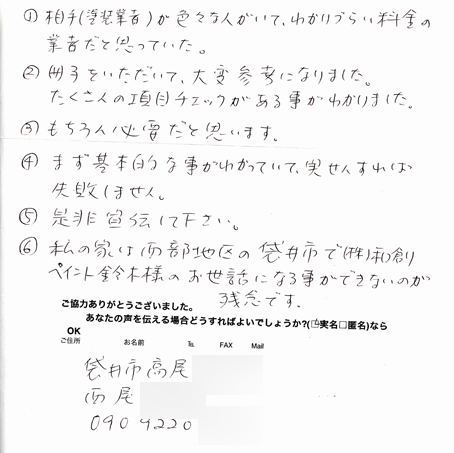 ① 相手(塗装業者)が色々な人がいて、わかりづらい料金の
業者だと思っていた。
② 冊子をいただいて、大変参考になりました。
たくさんの項目チェックがある事がわかりました。
③ もちろん必要だと思います。
④ まず基本的な事がわかっていて、実せんすれば
失敗しません。
⑤ 是非宣伝して下さい。
⑥ 私の家は西部地区の袋井市で(株)和創
ペイント鈴木様のお世話になる事ができないのが
残念です。
ご協力ありがとうございました。
あなたの声を伝える場合どうすればよいでしょうか?(☑実名□匿名)なら
OK
ご住所 お名前 ℡ FAX Mail
袋井市高尾
西尾
090 4220